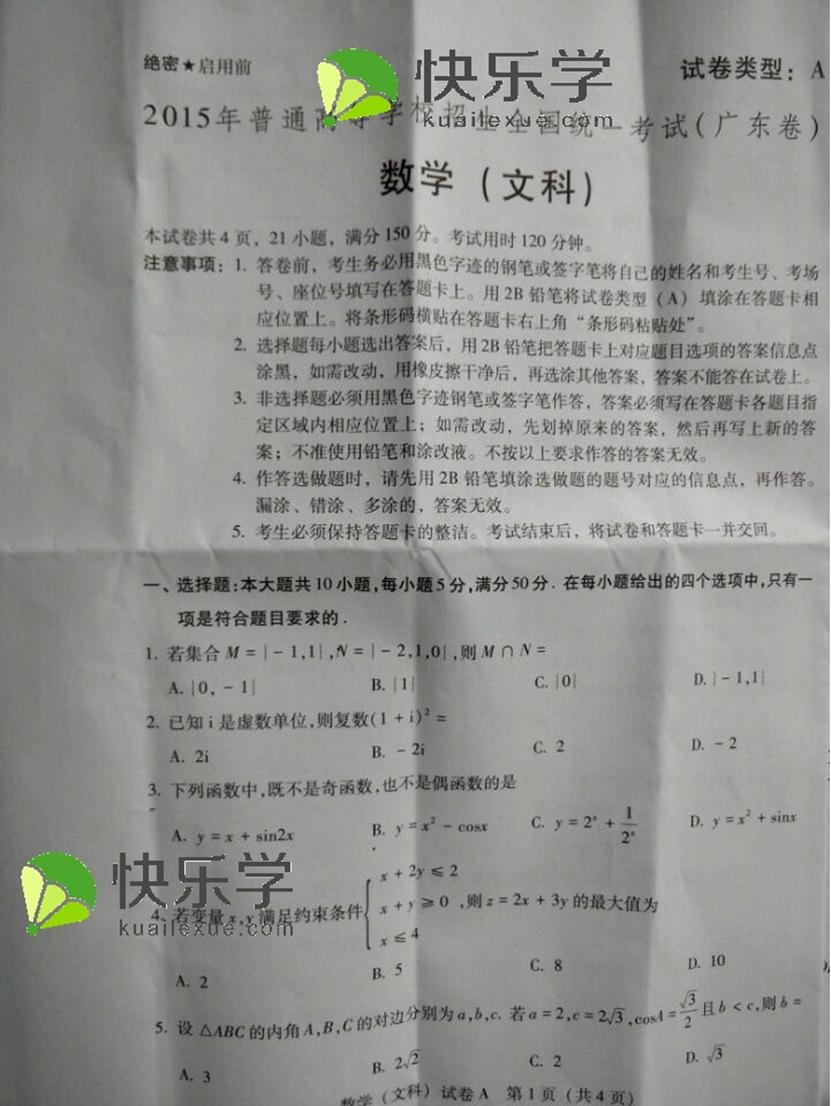 绝密★启用前
试卷类型：A
快乐学
kuailexue.com
2015年普通高等学校招生全国统一考试(广东卷)
数学(文科)
本试卷共4页，21小题，满分150分。考试用时120分钟。
注意事项：1. 答卷前，考生务必用黑色字迹的钢笔或签字笔将自己的姓名和考生号、考场
号、座位号填写在答题卡上。用2B铅笔将试卷类型(A)填涂在答题卡相
应位置上。将条形码横贴在答题卡右上角“条形码粘贴处”。
2. 选择题每小题选出答案后，用2B铅笔把答题卡上对应题目选项的答案信息点
涂黑，如需改动，用橡皮擦干净后，再选涂其他答案，答案不能答在试卷上。
3. 非选择题必须用黑色字迹钢笔或签字笔作答，答案必须写在答题卡各题目指
定区域内相应位置上；如需改动，先划掉原来的答案，然后再写上新的答
案；不准使用铅笔和涂改液。不按以上要求作答的答案无效。
4. 作答选做题时，请先用2B铅笔填涂选做题的题号对应的信息点，再作答。
漏涂、错涂、多涂的，答案无效。
5. 考生必须保持答题卡的整洁。考试结束后，将试卷和答题卡一并交回。
一、选择题:本大题共10小题,每小题5分,满分50分. 在每小题给出的四个选项中,只有一
项是符合题目要求的.
1. 若集合 M = {-1,1}, N = {-2,1,0}, 则 M ∩ N =
A. {0, -1} B. {1} C. {0} D. {-1,1}
2. 已知 i 是虚数单位,则复数(1 + i)² =
A. 2i B. -2i C. 2 D. -2
3. 下列函数中,既不是奇函数,也不是偶函数的是
A. y = x + sin2x B. y = x² - cosx C. y = 2ˣ + 1/2ˣ D. y = x² + sinx
快乐学
kuailexue.com
4. 若变量 x,y 满足约束条件 { x + 2y ≤ 2
x + y ≥ 0 ,则 z = 2x + 3y 的最大值为
x ≤ 4
A. 2 B. 5 C. 8 D. 10
5. 设 △ABC 的内角 A,B,C 的对边分别为 a,b,c. 若 a = 2, c = 2√3, cosA = √3/2 且 b < c, 则 b =
A. 3 B. 2√2 C. 2 D. √3
数学(文科)试卷A 第1页(共4页)